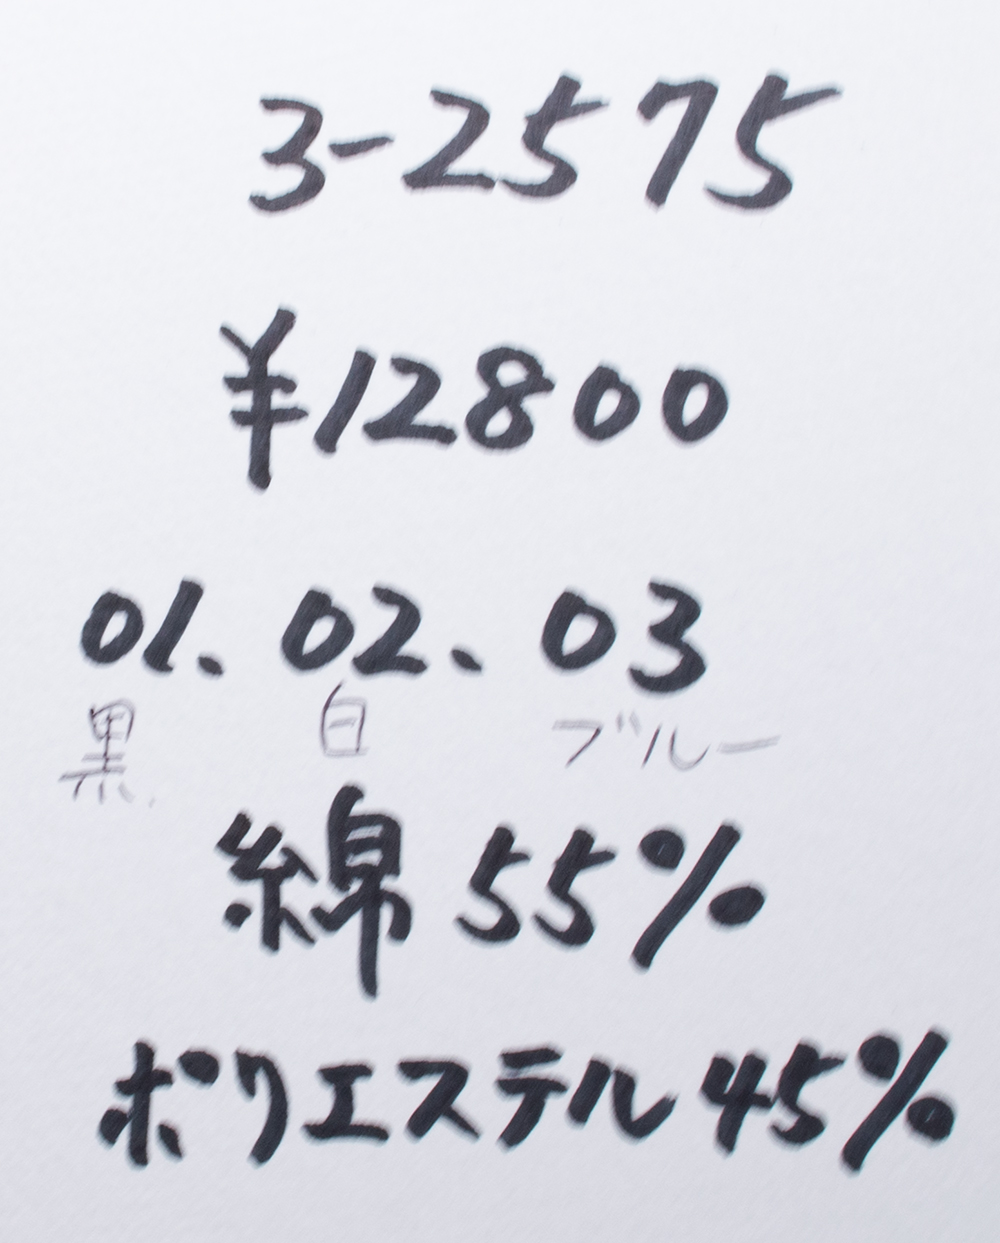 3-2575
¥12800
01. 02. 03
黒 白 ブルー
綿 55%
ポリエステル 45%